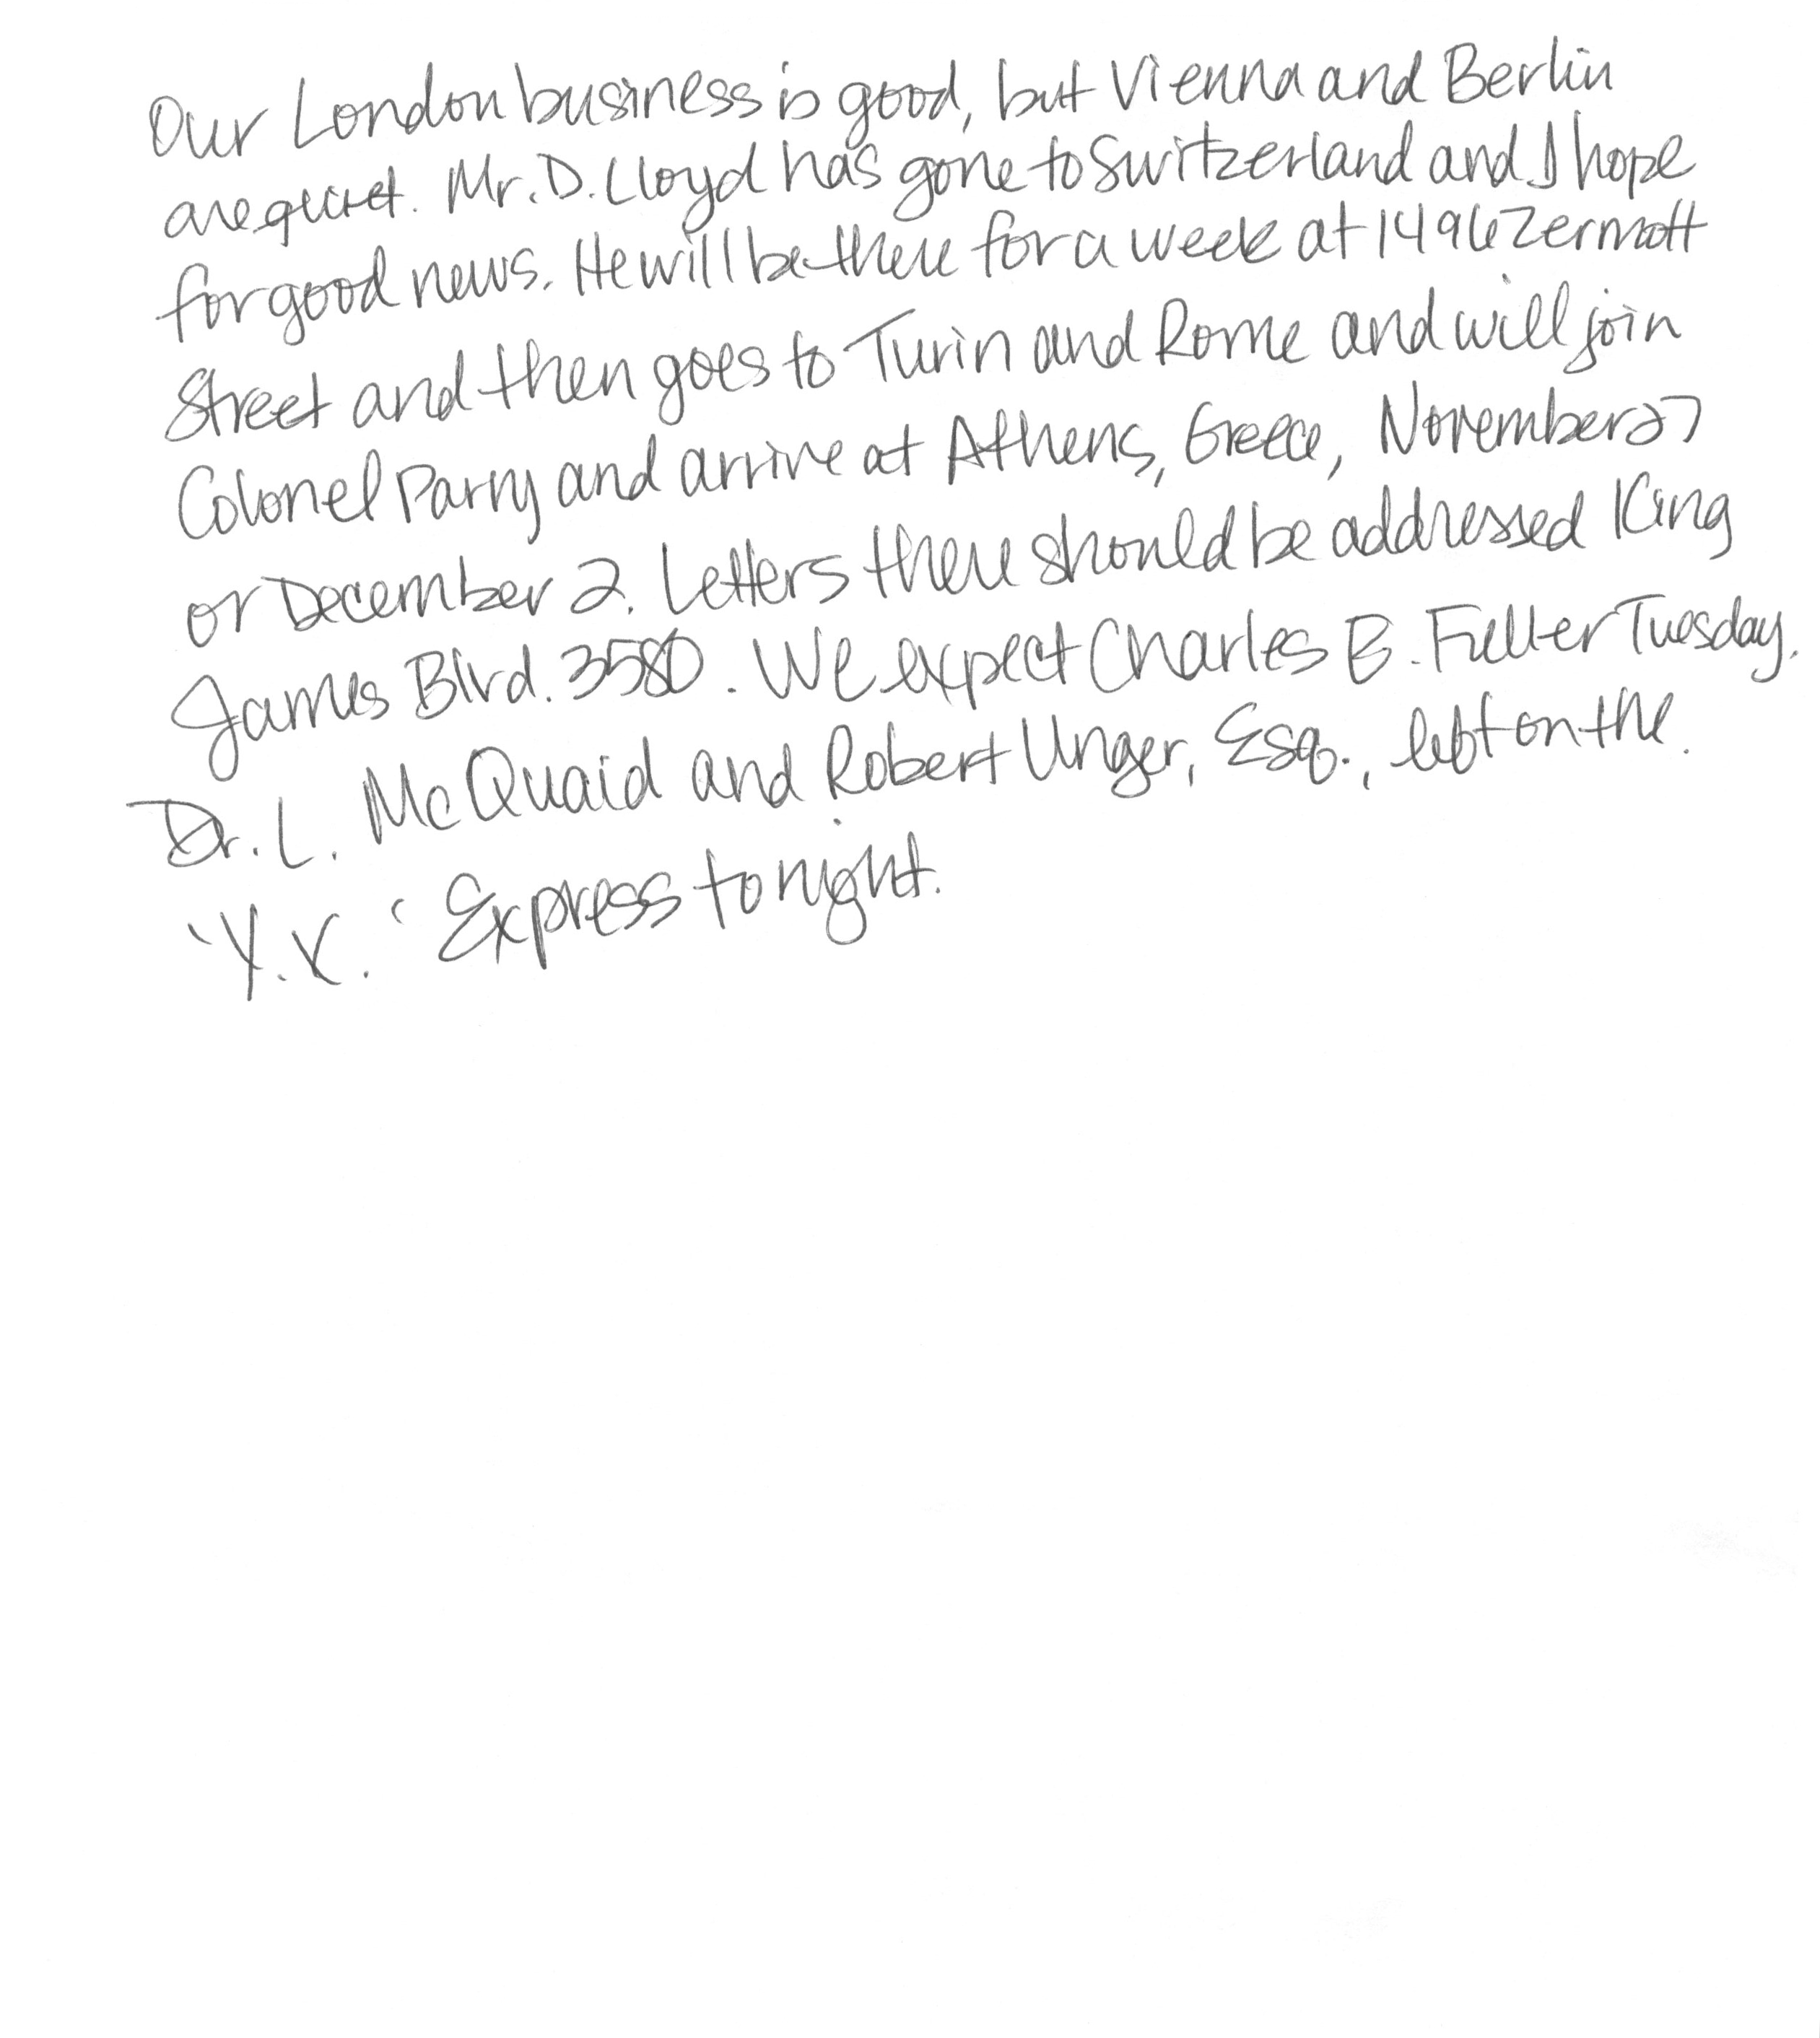 Our London business is good, but Vienna and Berlin
are quiet. Mr. D. Lloyd has gone to Switzerland and I hope
for good news. He will be there for a week at 1496 Zermott
Street and then goes to Turin and Rome and will join
Colonel Parry and arrive at Athens, Greece, November 27
or December 2. Letters there should be addressed King
James Blvd. 3580. We expect Charles E. Fuller Tuesday.
Dr. L. McQuaid and Robert Unger, Esq., left on the
'Y.X.' Express tonight.